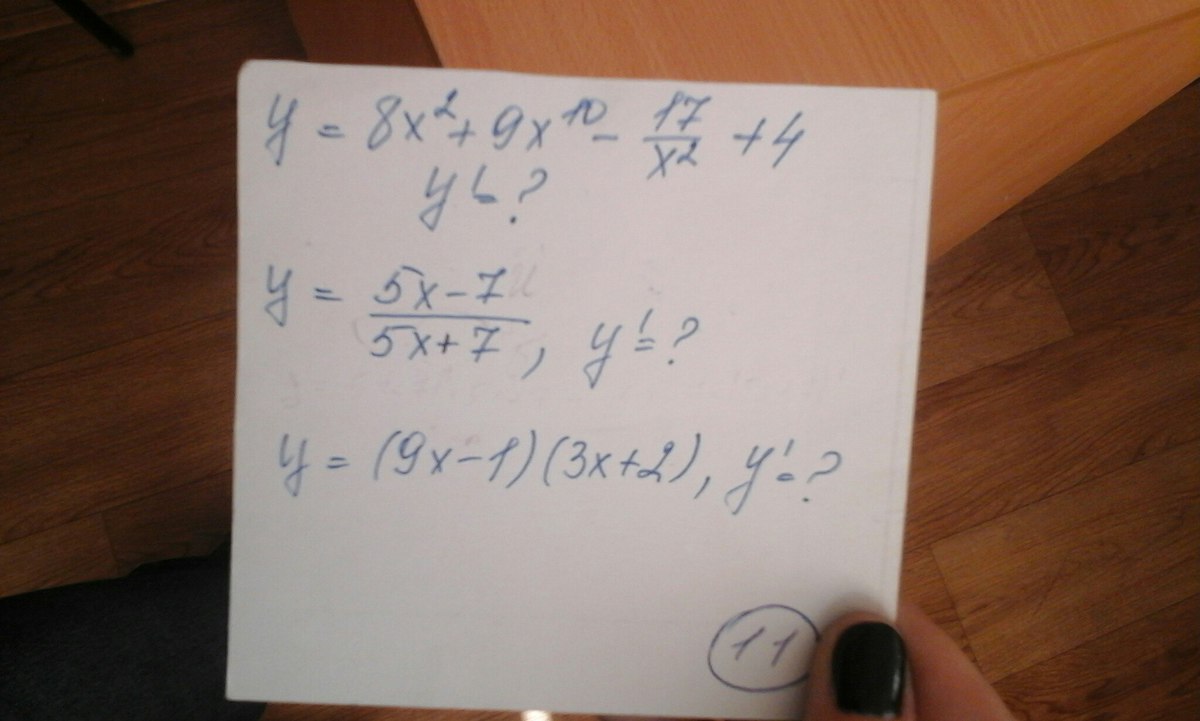 y = 8x² + 9x¹⁰ - 17/x² + 4
y'=?
y = (5x-7)/(5x+7), y'=?
y = (9x-1)(3x+2), y'=?
11